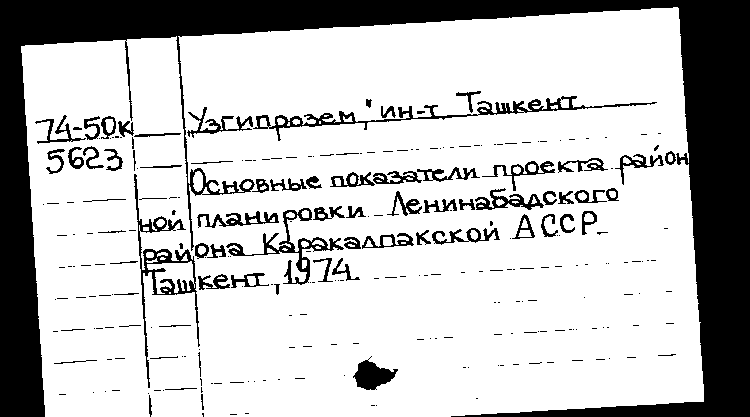 74-50к
5623
"Узгипрозем", ин-т. Ташкент.
Основные показатели проекта район
ной планировки Ленинабадского
района Каракалпакской АССР.
Ташкент, 1974.